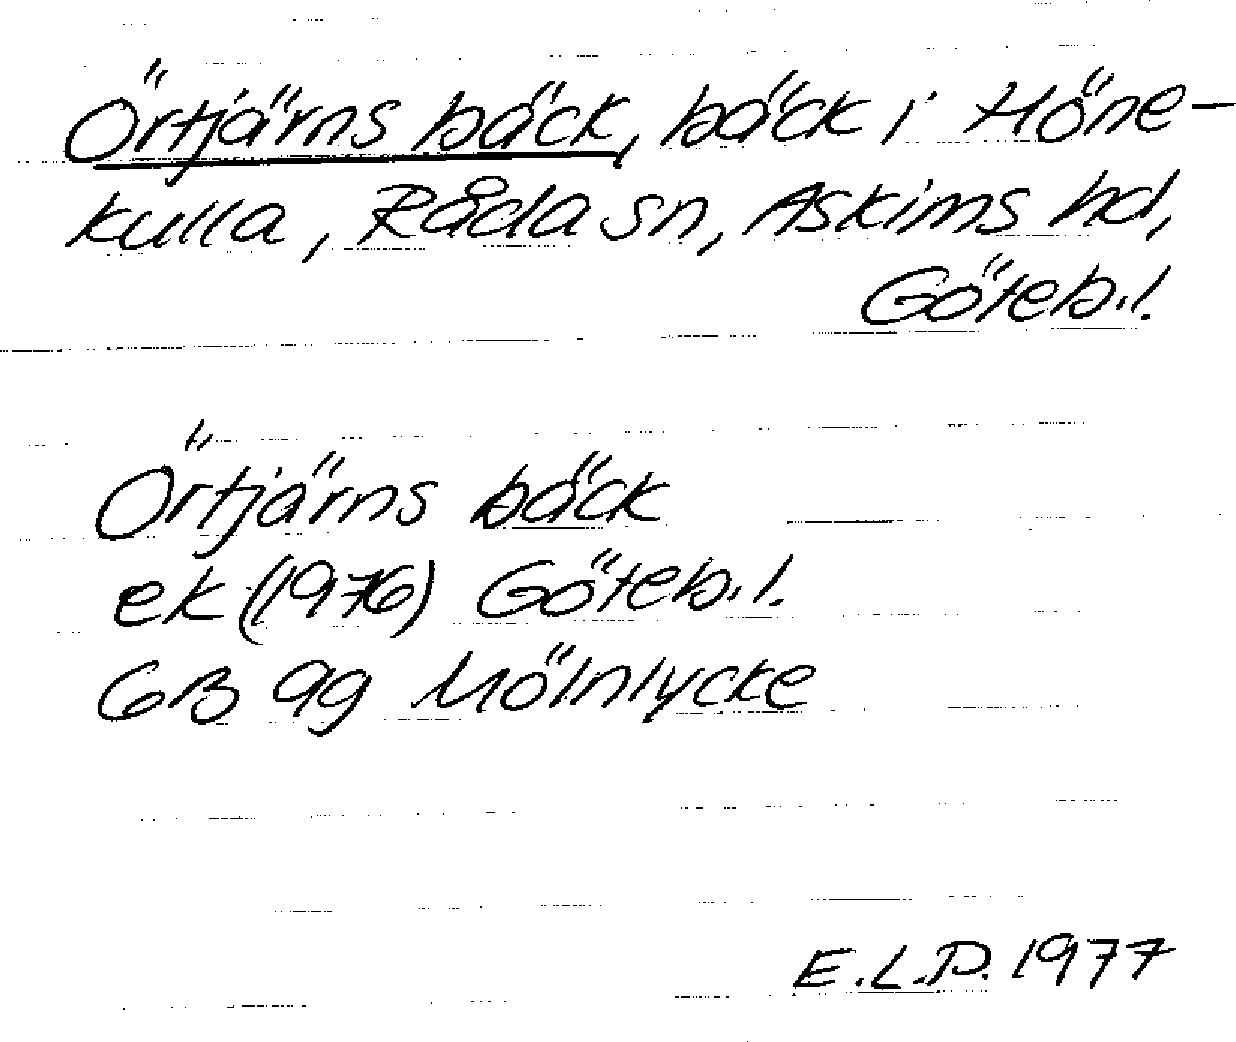 Örtjärns bäck, bäck i Höne-
kulla, Råda sn, Askims hd,
Göteb.l.
Örtjärns bäck
ek (1976) Göteb.l.
GB 9g Mölnlycke
E.L.P. 1977